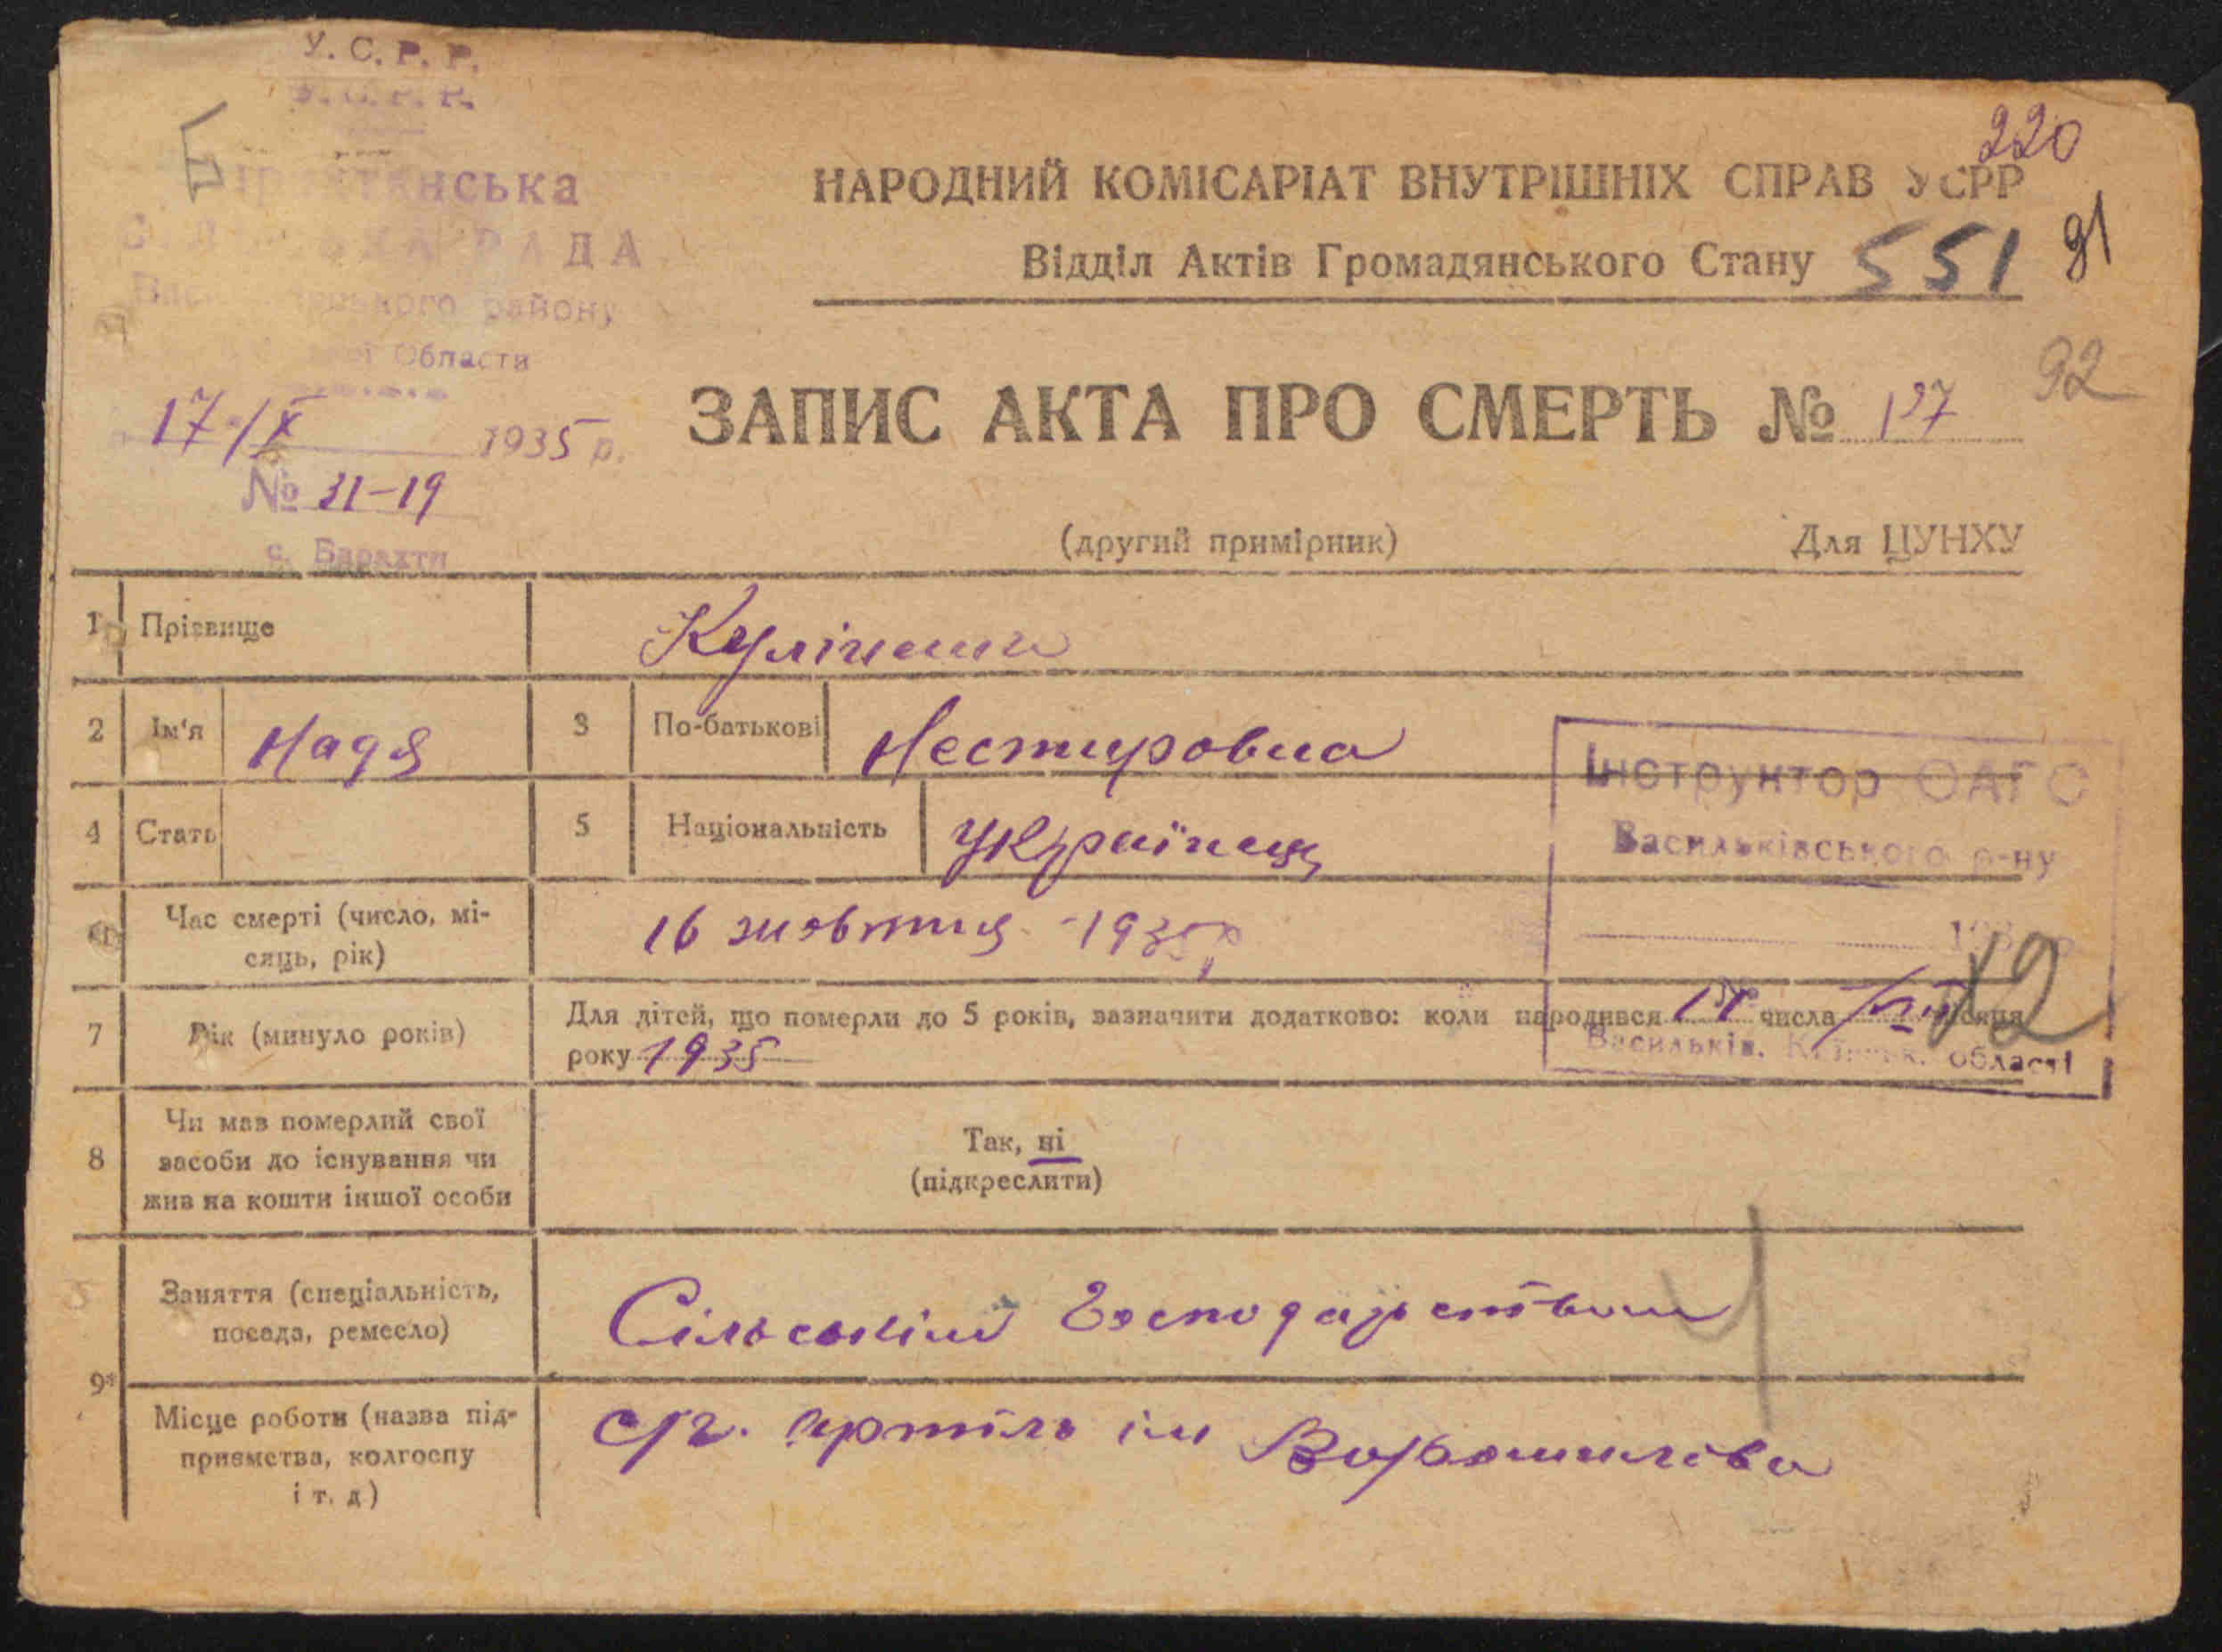 У. С. Р. Р.
РАДА
району
Области
17/X 1935 р.
№ 31-19
с. Барахти
220
НАРОДНИЙ КОМІСАРІАТ ВНУТРІШНІХ СПРАВ УСРР
91
Відділ Актів Громадянського Стану 551
92
ЗАПИС АКТА ПРО СМЕРТЬ №
(другий примірник) Для ЦУНХУ
1 Прізвище
2 Ім'я Надя 3 По-батькові Нестировна
4 Стать 5 Національність Українец
Інструктор ОАГС
Васильківського р-ну
6 Час смерті (число, мі-
сяць, рік) 16 жовтня 1935 р
7 Вік (минуло років) Для дітей, що померли до 5 років, зазначити додатково: коли народився числа місяця
року 1935
Васильків. області
12
8 Чи мав померлий свої
засоби до існування чи
жив на кошти іншої особи
Так, ні
(підкреслити)
9 Заняття (спеціальність,
посада, ремесло) Господарством
Місце роботи (назва під-
приємства, колгоспу
і т. д) с/г. артіль ім Ворошилова